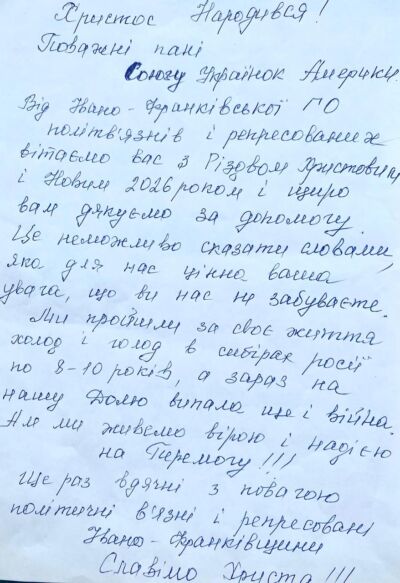 Христос Народився!
Поважні пані
Союзу Українок Америки.
Від Івано-Франківської ГО
політв'язнів і репресованих
вітаємо вас з Різдвом Христовим
і Новим 2026 роком і щиро
вам дякуємо за допомогу.
Це неможливо сказати словами,
яка для нас цінна ваша
увага, що ви нас не забуваєте.
Ми пройшли за своє життя
холод і голод в сибірах росії
по 8-10 років, а зараз на
нашу Долю випала ще і війна.
Але ми живемо вірою і надією
на Перемогу!!!
Ще раз вдячні з повагою
політичні в'язні і репресовані
Івано-Франківщини
Славімо Христа!!!